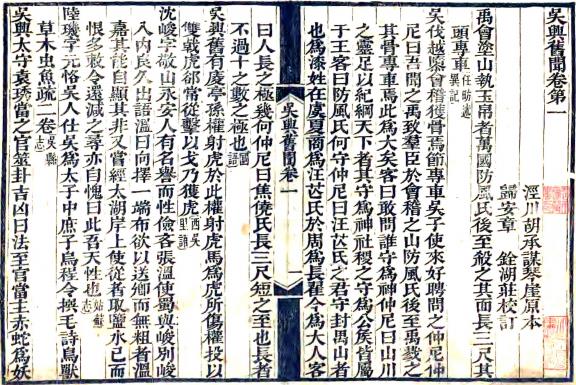 吳興舊聞卷第一
涇川胡承謀琴崖原本
歸安章　銓湖莊校訂
禹會塗山執玉帛者萬國防風氏後至殺之其面長三尺其
頭專車任昉述異記
吳伐越隳會稽獲骨焉節專車吳子使來好聘問之仲尼仲
尼曰吾聞之禹致羣臣於會稽之山防風氏後至禹戮之
其骨專車焉此爲大矣客曰敢問誰守爲神仲尼曰山川
之靈足以紀綱天下者其守爲神社稷之守爲公侯皆屬
于王客曰防風氏何守仲尼曰汪芒氏之君守封禺山者
也爲漆姓在虞夏商爲汪芒氏於周爲長翟今爲大人客
吳興舊聞卷一　一
曰人長之極幾何仲尼曰焦僥氏長三尺短之至也長者
不過十之數之極也國語
吳興舊有虔亭孫權射虎於此權射虎馬爲虎所傷權投以
雙戟虎卻常從擊以戈乃獲虎西吳里語
沈峻字敬山永安人有名譽而性儉客張溫使蜀與峻別峻
入內良久出語溫曰向擇一端布欲以送卿而無粗者溫
嘉其能自顯其非又嘗經太湖岸上使從者取鹽水已而
恨多敕令還減之尋亦自愧曰此吾天性也姑蘇志
陸璣字元恪吳人仕吳爲太子中庶子烏程令撰毛詩鳥獸
草木虫魚疏二卷吳縣志
吳興太守袁琇當之官筮卦吉凶曰法至官當主赤蛇爲妖